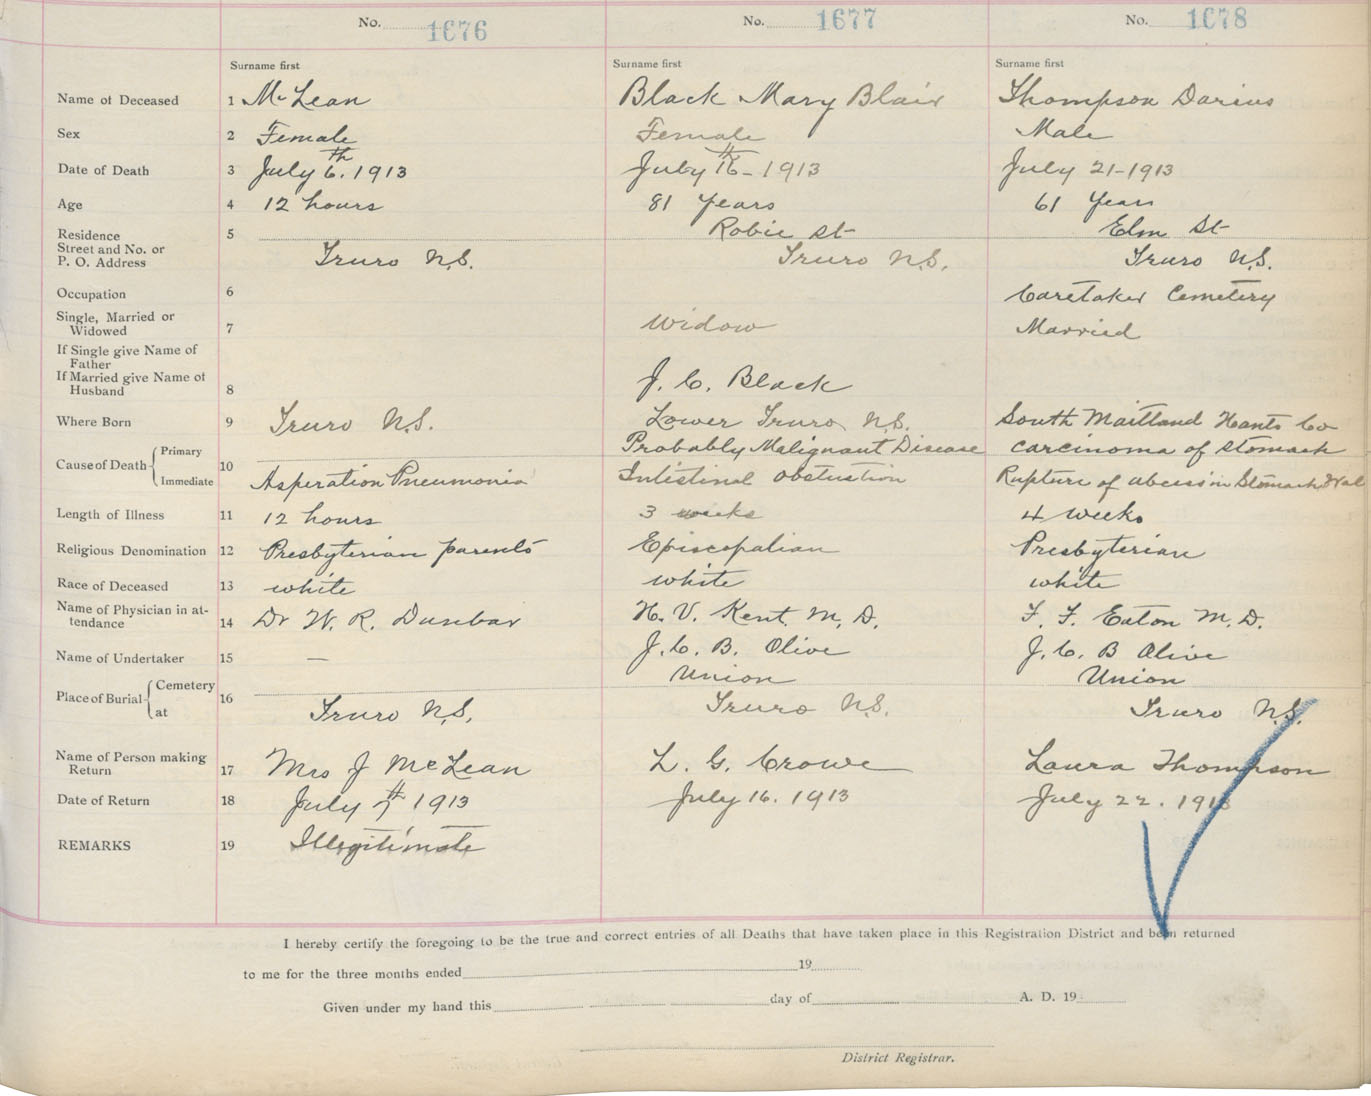 No. 1676 No. 1677 No. 1678
Surname first Surname first Surname first
Name of Deceased 1 McLean Black Mary Blair Thompson Darius
Sex 2 Female Female Male
Date of Death 3 July 6th. 1913 July 16th - 1913 July 21-1913
Age 4 12 hours 81 years 61 years
Residence 5 Robie St Elm St
Street and No. or
P. O. Address Truro N.S. Truro N.S. Truro N.S.
Occupation 6 Caretaker Cemetery
Single, Married or
Widowed 7 Widow Married
If Single give Name of
Father
If Married give Name of
Husband 8 J. C. Black
Where Born 9 Truro N.S. Lower Truro N.S. South Maitland Hants Co
Cause of Death Primary 10 Probably Malignant Disease Carcinoma of Stomach
Immediate Asperation Pneumonia Intistinal obstustion Rupture of abcess in Stomach
Length of Illness 11 12 hours 3 weeks 4 weeks
Religious Denomination 12 Presbyterian parents Episcopalian Presbyterian
Race of Deceased 13 white white white
Name of Physician in at-
tendance 14 Dr W. R. Dunbar H. V. Kent, M. D. F. F. Eaton M. D.
Name of Undertaker 15 — J. C. B. Olive J. C. B Olive
Place of Burial Cemetery 16 Union Union
at Truro N.S. Truro N.S. Truro N.S.
Name of Person making
Return 17 Mrs J McLean L. G. Crowe Laura Thompson
Date of Return 18 July 7th 1913 July 16. 1913 July 22. 1913
REMARKS 19 Illegitimate
I hereby certify the foregoing to be the true and correct entries of all Deaths that have taken place in this Registration District and been returned
to me for the three months ended 19
Given under my hand this day of A. D. 19
District Registrar.